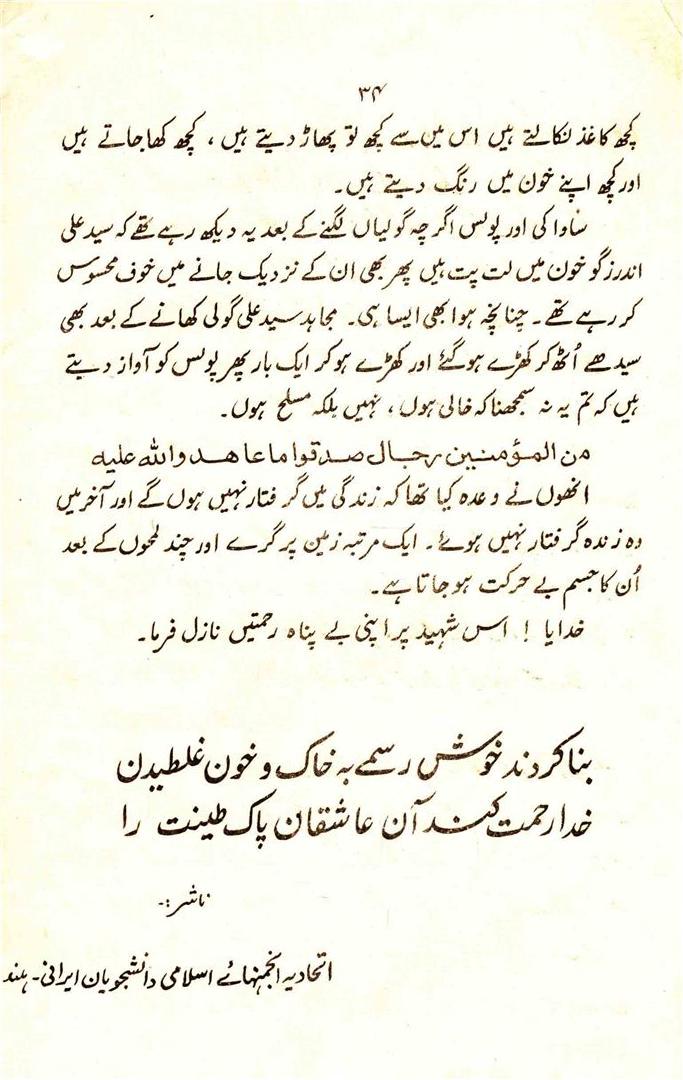 ۳۴
کچھ کاغذ نکالتے ہیں اس میں سے کچھ تو پھاڑ دیتے ہیں ، کچھ کھا جاتے ہیں
اور کچھ اپنے خون میں رنگ دیتے ہیں۔
ساواکی اور پولس اگرچہ گولیاں لگنے کے بعد یہ دیکھ رہے تھے کہ سید علی
اندرزگو خون میں لت پت ہیں پھر بھی ان کے نزدیک جانے میں خوف محسوس
کر رہے تھے۔ چنانچہ ہوا بھی ایسا ہی۔ مجاہد سید علی گولی کھانے کے بعد بھی
سیدھے اُٹھ کر کھڑے ہوگئے اور کھڑے ہوکر ایک بار پھر پولس کو آواز دیتے
ہیں کہ تم یہ نہ سمجھنا کہ خالی ہوں ، نہیں بلکہ مسلح ہوں۔
من المؤمنین رجال صدقوا ما عاهدوالله علیه
انھوں نے وعدہ کیا تھا کہ زندگی میں گرفتار نہیں ہوں گے اور آخر میں
وہ زندہ گرفتار نہیں ہوئے۔ ایک مرتبہ زمین پر گرے اور چند لمحوں کے بعد
اُن کا جسم بے حرکت ہو جاتا ہے۔
خدایا ! اس شہید پر اپنی بے پناہ رحمتیں نازل فرما۔
بنا کردند خوش رسمے بہ خاک و خون غلطیدن
خدا رحمت کند آن عاشقان پاک طینت را
ناشر :۔
اتحادیہ انجمنہائے اسلامی دانشجویان ایرانی۔ ہند